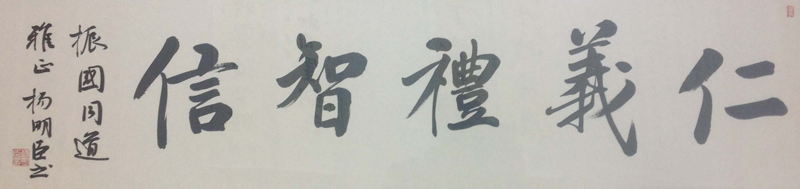 仁義禮智信
振國同道
雅正 楊明臣書